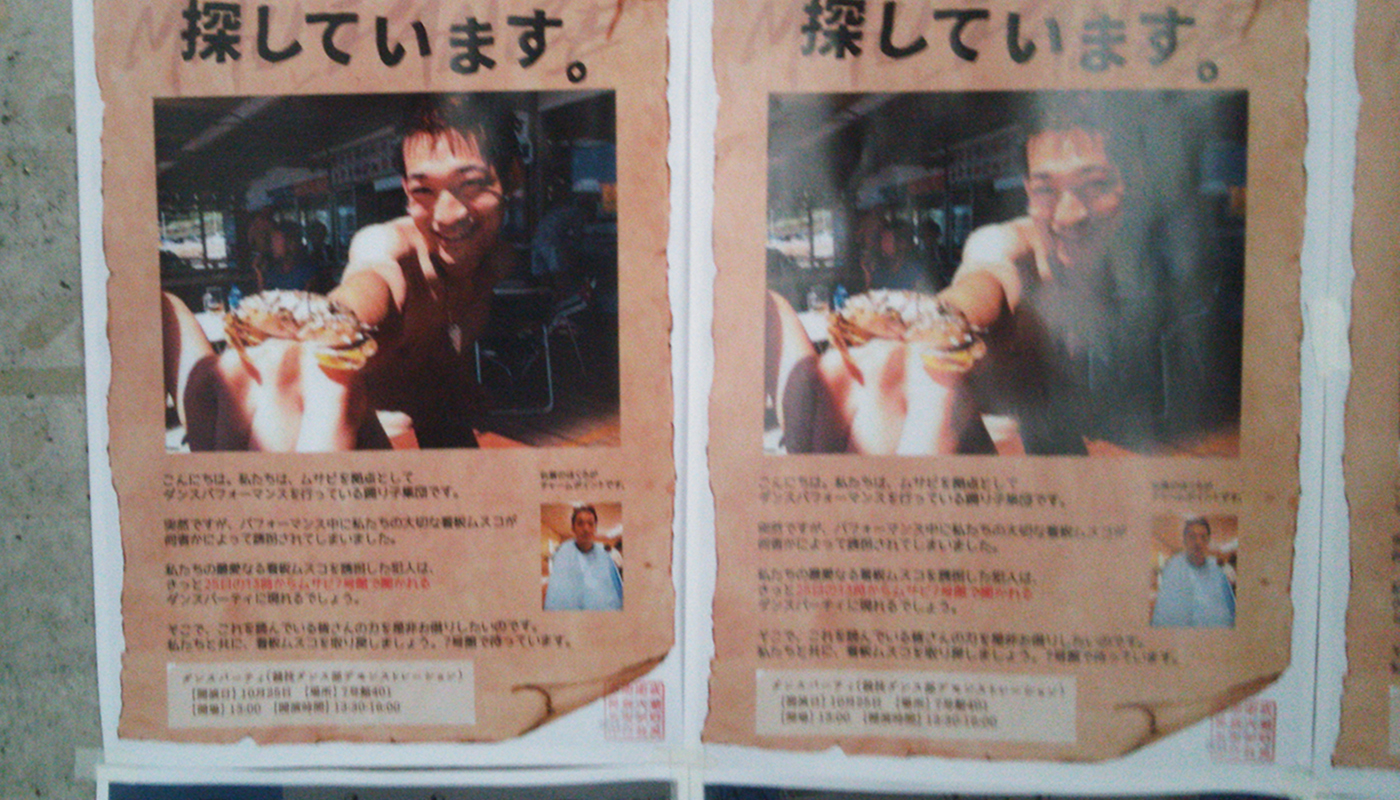 探しています。
こんにちは。私たちは、ムサビを拠点として
ダンスパフォーマンスを行っている踊り子集団です。
突然ですが、パフォーマンス中に私たちの大切な看板ムスコが
何者かによって誘拐されてしまいました。
私たちの最愛なる看板ムスコを誘拐した犯人は、
きっと25日の13時からムサビ7号館で開かれる
ダンスパーティに現れるでしょう。
そこで、これを読んでいる皆さんの力を是非お借りしたいのです。
私たちと共に、看板ムスコを取り戻しましょう。7号館で待っています。
チャームポイントです。
ダンスパーティ(競技ダンス部デモンストレーション)
【開演日】10月25日 【場所】7号館401
【開場】13:00 【開演時間】13:30-16:00
探しています。
こんにちは。私たちは、ムサビを拠点として
ダンスパフォーマンスを行っている踊り子集団です。
突然ですが、パフォーマンス中に私たちの大切な看板ムスコが
何者かによって誘拐されてしまいました。
私たちの最愛なる看板ムスコを誘拐した犯人は、
きっと25日の13時からムサビ7号館で開かれる
ダンスパーティに現れるでしょう。
そこで、これを読んでいる皆さんの力を是非お借りしたいのです。
私たちと共に、看板ムスコを取り戻しましょう。7号館で待っています。
チャームポイントです。
ダンスパーティ(競技ダンス部デモンストレーション)
【開演日】10月25日 【場所】7号館401
【開場】13:00 【開演時間】13:30-16:00